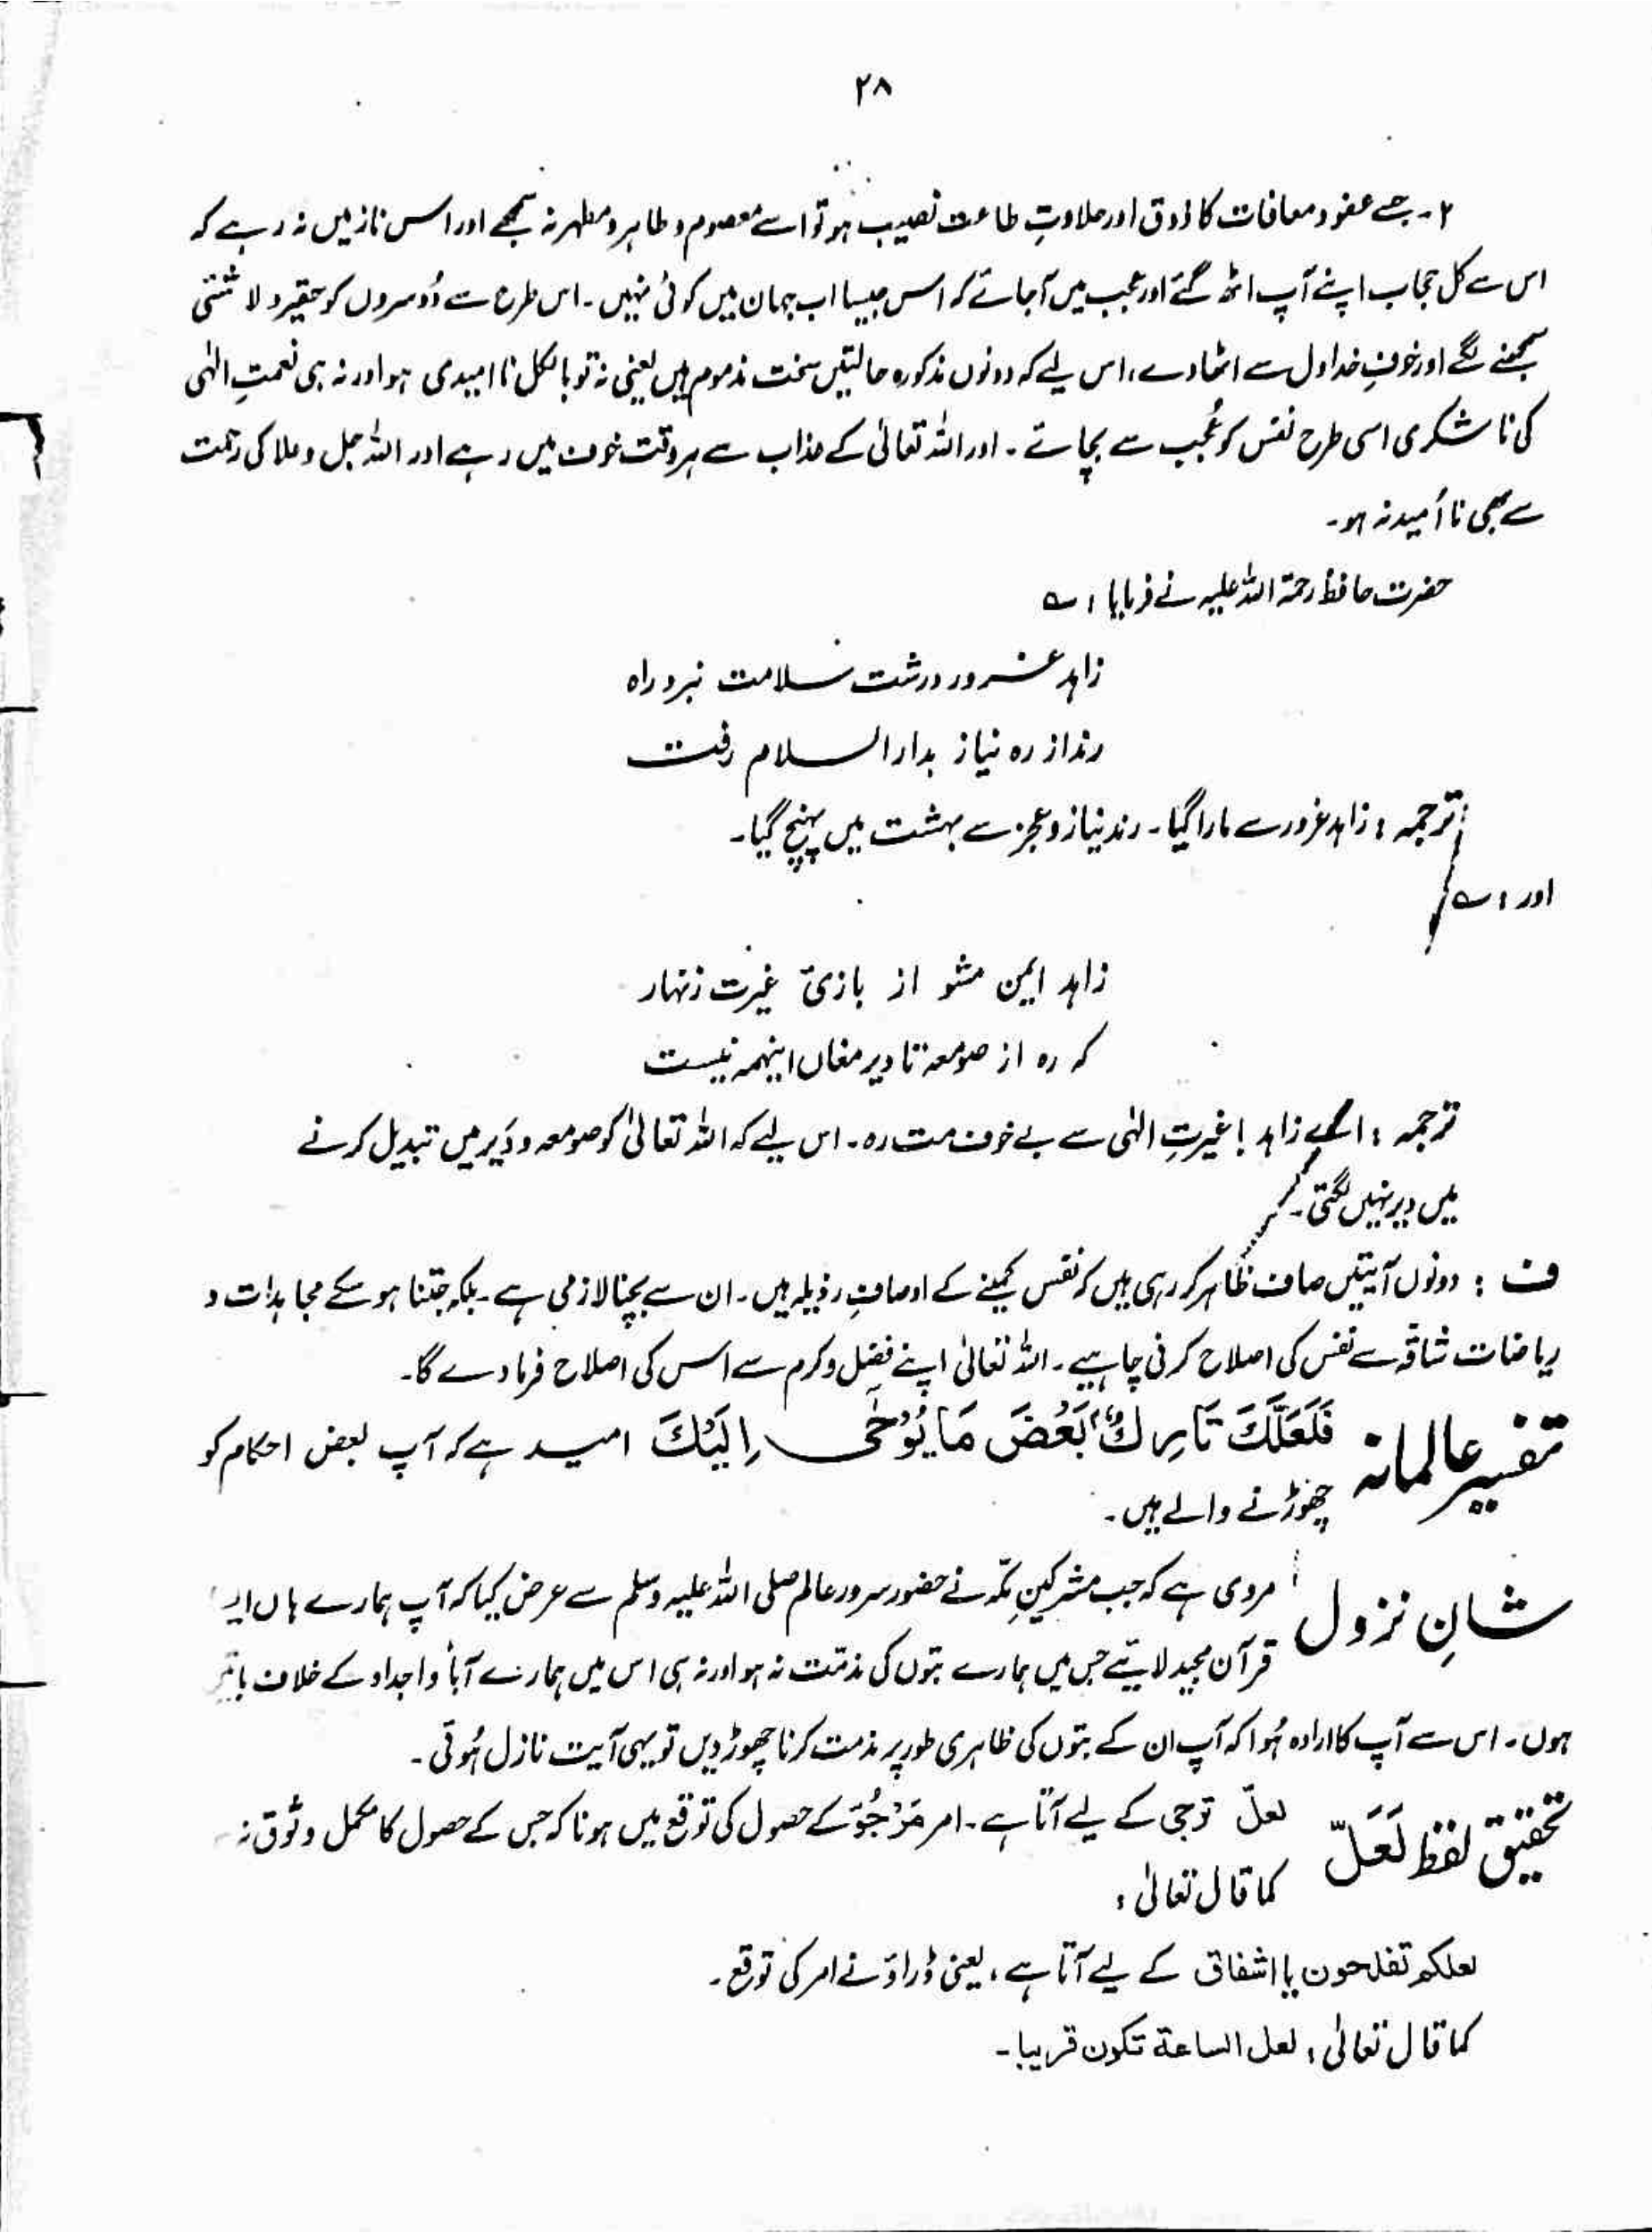 ۲۸
۲۔ جسے عفو و معافات کا ذوق اور حلاوتِ طاعت نصیب ہو تو اسے معصوم و طاہر و مطہر نہ سمجھے اور اس ناز میں نہ رہے کہ
اس سے کل حجاب اپنے آپ اٹھ گئے اور عجب میں آجائے کہ اس جیسا اب جہان میں کوئی نہیں۔ اس طرح سے دُوسروں کو حقیر و لا شئی
سمجھنے لگے اور خوفِ خدا دل سے اٹھا دے، اس لیے کہ دونوں مذکورہ حالتیں سخت مذموم ہیں یعنی نہ تو بالکل نا امیدی ہو اور نہ ہی نعمتِ الٰہی
کی نا شکری اسی طرح نفس کو عُجب سے بچائے۔ اور اللہ تعالیٰ کے عذاب سے ہر وقت خوف میں رہے اور اللہ جل و علا کی رحمت
سے بھی نا اُمید نہ ہو۔
حضرت حافظ رحمۃ اللہ علیہ نے فرمایا ؛ ؎
زاہد غرور درشت سلامت نبرد راہ
رند از رہ نیاز بدار السلام رفت
ترجمہ : زاہد غرور سے مارا گیا۔ رند نیاز و عجز سے بہشت میں پہنچ گیا۔
اور : ؎
زاہد ایمن مشو از بازیٔ غیرت زنہار
کہ رہ از صومعہ تا دیر مغاں اینہمہ نیست
ترجمہ : اے زاہد ! غیرتِ الٰہی سے بے خوف مت رہ۔ اس لیے کہ اللہ تعالیٰ کو صومعہ و دَیر میں تبدیل کرنے
میں دیر نہیں لگتی۔
ف : دونوں آیتیں صاف ظاہر کر رہی ہیں کہ نفس کمینے کے اوصافِ رذیلہ ہیں۔ ان سے بچنا لازمی ہے۔ بلکہ جتنا ہو سکے مجاہدات و
ریاضات شاقہ سے نفس کی اصلاح کرنی چاہیے۔ اللہ تعالیٰ اپنے فضل و کرم سے اس کی اصلاح فرما دے گا۔
تفسیر عالمانہ فَلَعَلَّكَ تَارِكٌ بَعْضَ مَا يُوْحٰى اِلَيْكَ امید ہے کہ آپ بعض احکام کو
چھوڑنے والے ہیں۔
شانِ نزول مروی ہے کہ جب مشرکینِ مکّہ نے حضور سرور عالم صلی اللہ علیہ وسلم سے عرض کیا کہ آپ ہمارے ہاں
قرآن مجید لائیے جس میں ہمارے بتوں کی مذمّت نہ ہو اور نہ ہی اس میں ہمارے آبأ و اجداد کے خلاف باتیں
ہوں۔ اس سے آپ کا ارادہ ہُوا کہ آپ ان کے بتوں کی ظاہری طور پر مذمت کرنا چھوڑ دیں تو یہی آیت نازل ہُوئی۔
تحقیق لفظ لَعَلّ لعلّ ترجی کے لیے آتا ہے۔ امر مَرْجُوّ کے حصول کی توقع میں ہونا کہ جس کے حصول کا مکمل وثوق نہ
کما قال تعالیٰ :
لعلکم تفلحون یا اشفاق کے لیے آتا ہے، یعنی ڈراؤنے امر کی توقع۔
کما قال تعالیٰ : لعل الساعة تكون قریبا۔